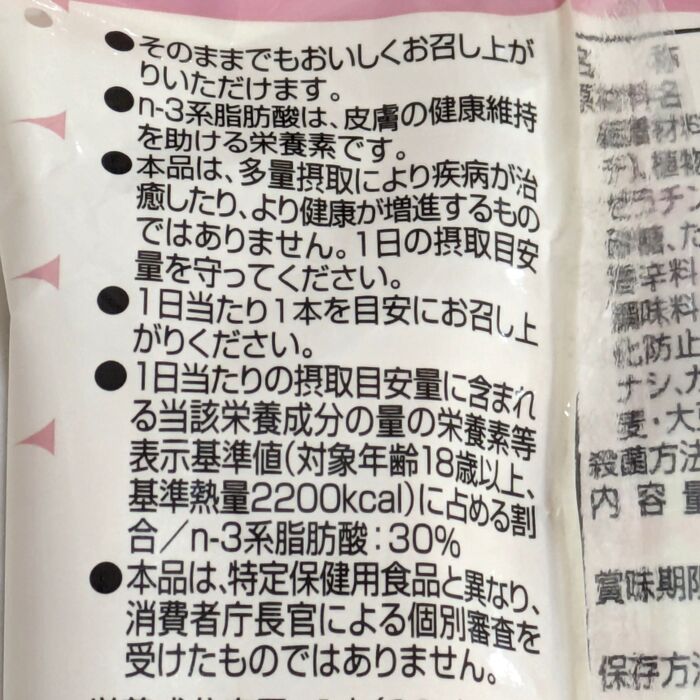 ●そのままでもおいしくお召し上が
りいただけます。
●n-3系脂肪酸は、皮膚の健康維持
を助ける栄養素です。
●本品は、多量摂取により疾病が治
癒したり、より健康が増進するもの
ではありません。1日の摂取目安
量を守ってください。
●1日当たり1本を目安にお召し上
がりください。
●1日当たりの摂取目安量に含まれ
る当該栄養成分の量の栄養素等
表示基準値(対象年齢18歳以上、
基準熱量2200kcal)に占める割
合/n-3系脂肪酸:30%
●本品は、特定保健用食品と異なり、
消費者庁長官による個別審査を
受けたものではありません。
名 称
原材料名
チ、植物
香辛料
調味料
化防止
ナシ、
麦・大
殺菌方法
内容量
賞味期限
保存方法